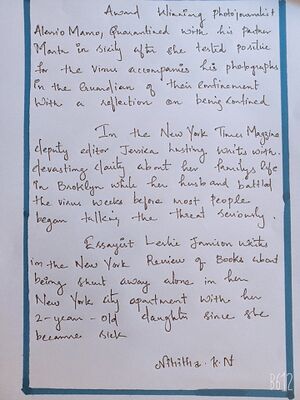 Award Winning photojournalist
Alenio Mamo, Quarantined with his partner
Marta in sicily after she tested positive
for the virus accompanies his photographs
in the Guardian of their confinement
With a reflection on being confined
In the New York Times Magzine
deputy editor Jessica lusting writes with
devasting claity about her family's life
in Brooklyn while her husband battled
the virus weeks before most people
began talking the threat seriously.
Essayist Leslie Jamison writes
in the New York Review of Books about
being shut away alone in her
New York city apartment with her
2-year-old daughter since she
became sick
Nihitha.K.N
B612